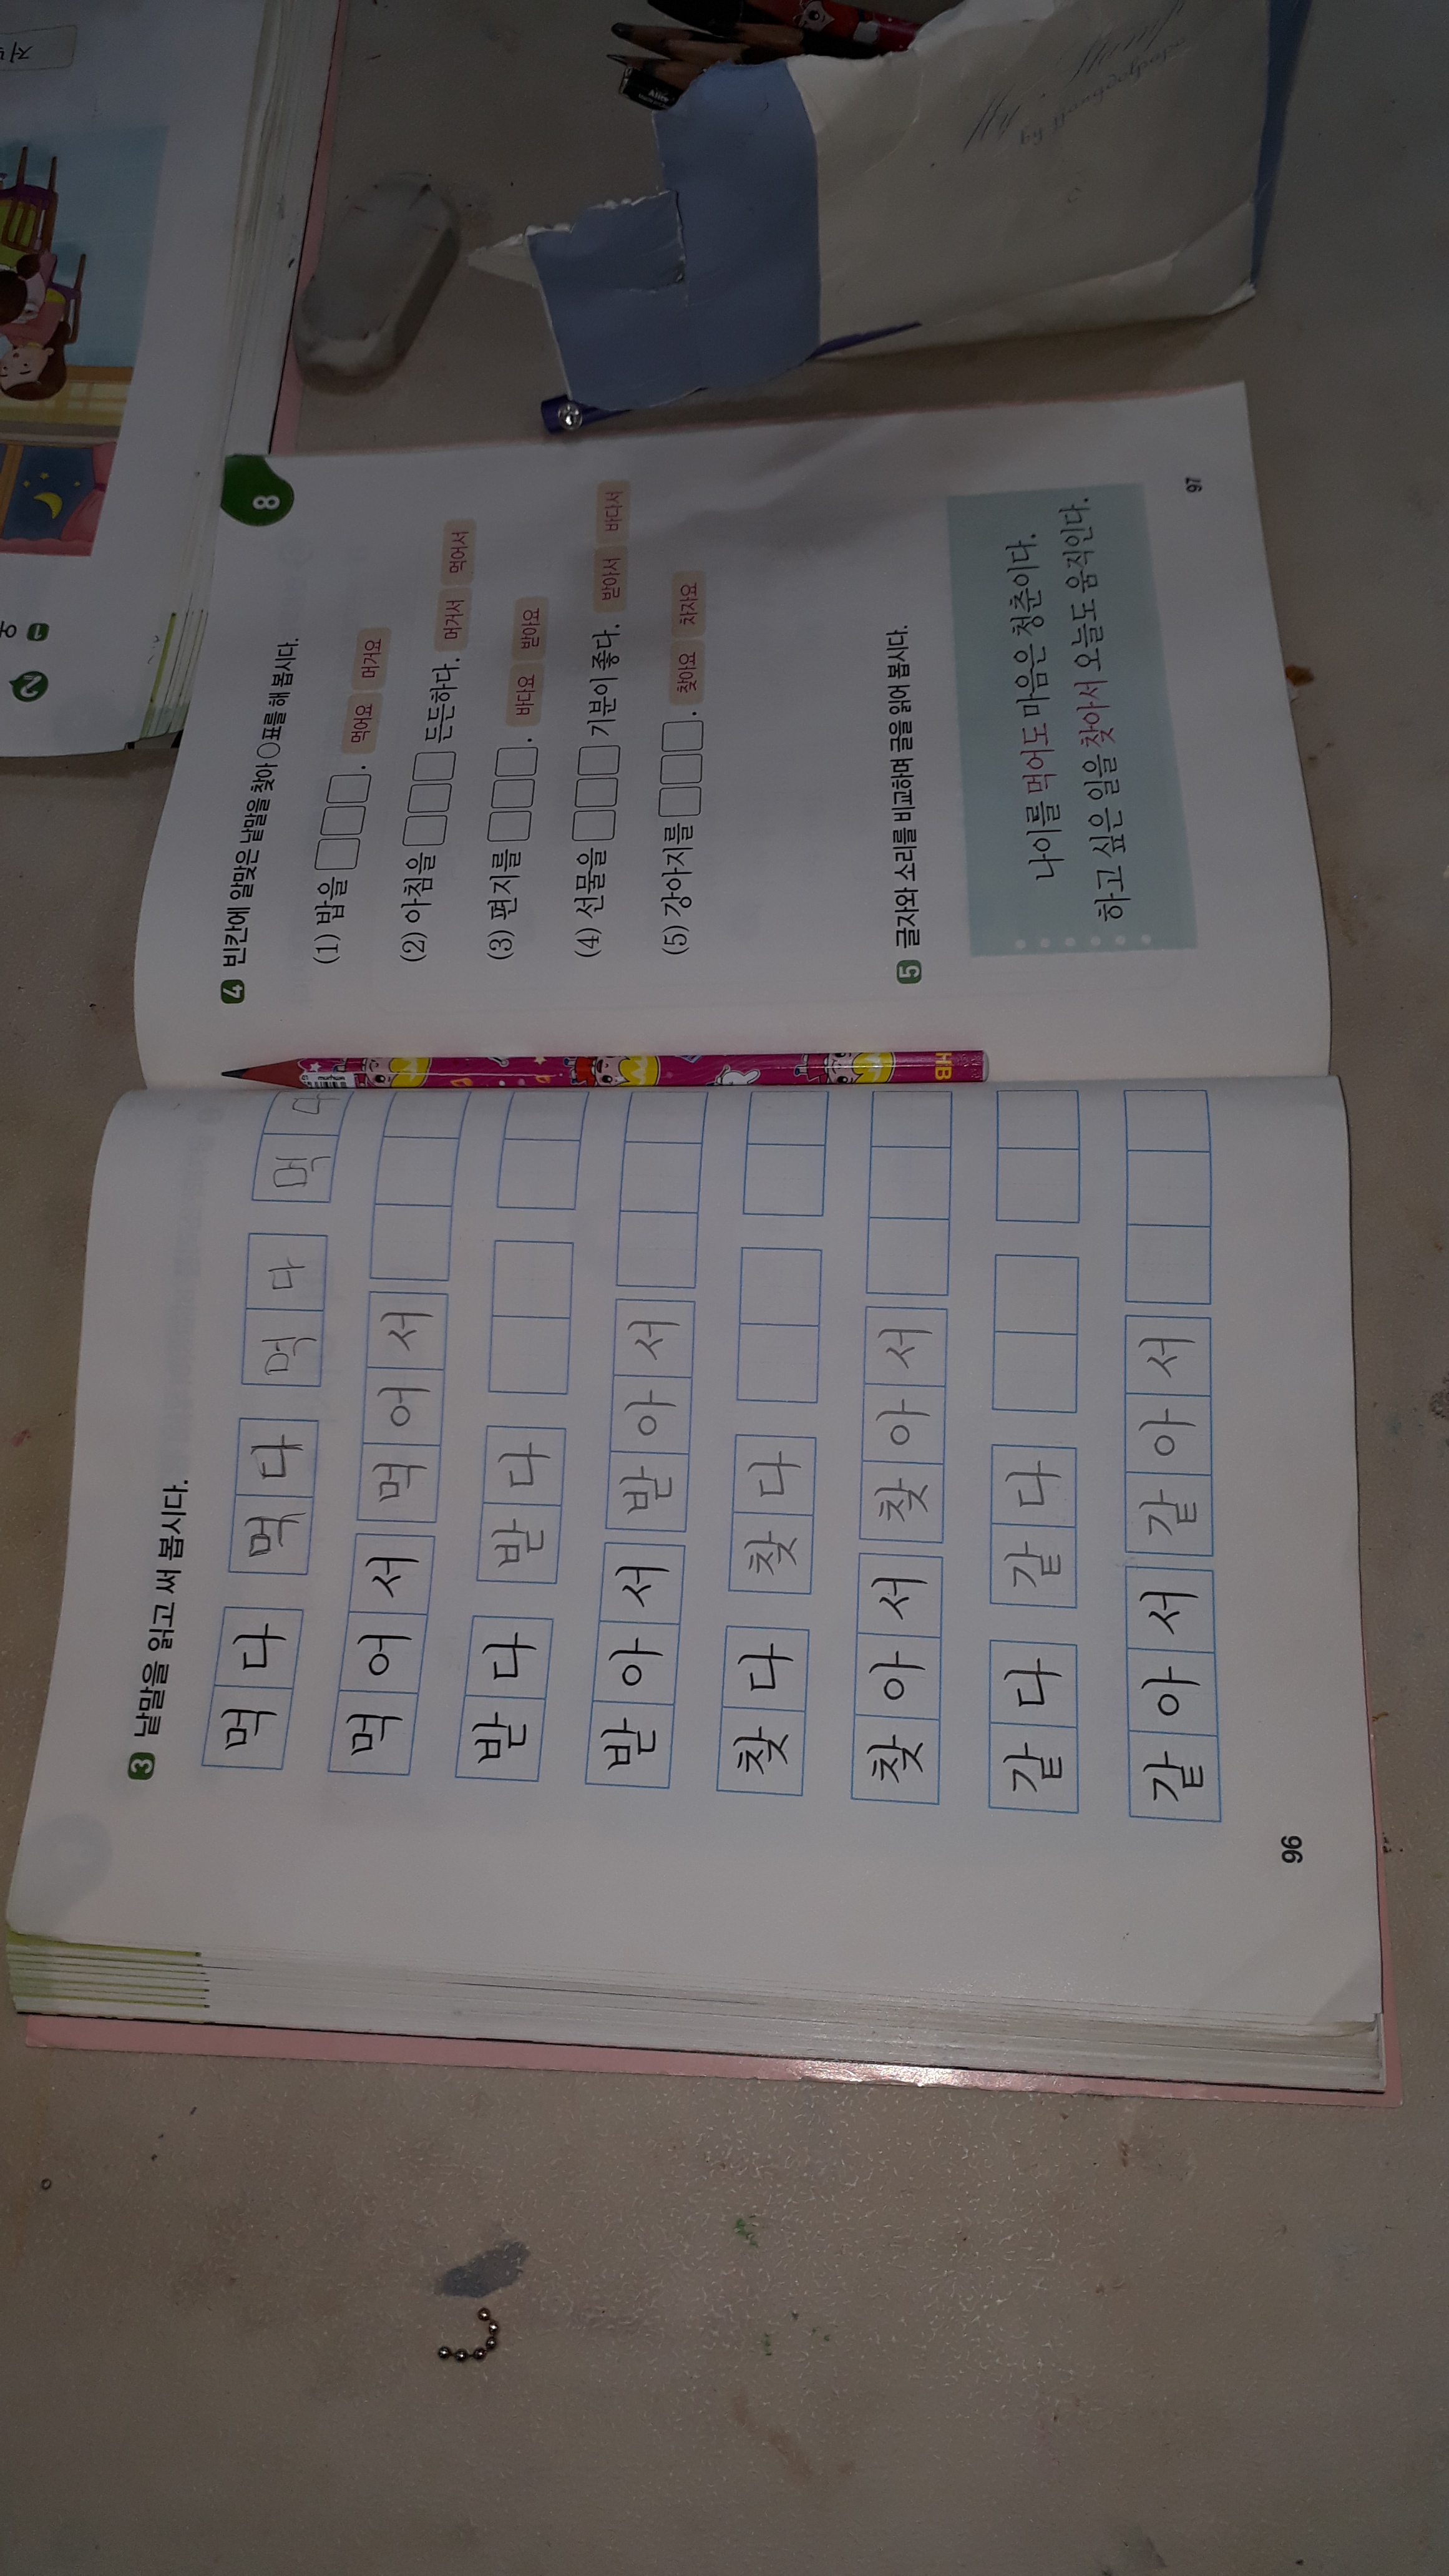 3 낱말을 읽고 써 봅시다.
먹다 먹다 먹다 먹
먹어서 먹어서
받다 받다
받아서 받아서
찾다 찾다
찾아서 찾아서
같다 같다
같아서 같아서
96
8
4 빈칸에 알맞은 낱말을 찾아 ○표를 해 봅시다.
(1) 밥을 □□□. 먹어요 머거요
(2) 아침을 □□□ 든든하다. 머거서 먹어서
(3) 편지를 □□□. 바다요 받아요
(4) 선물을 □□□ 기분이 좋다. 받아서 바다서
(5) 강아지를 □□□. 찾아요 차자요
5 글자와 소리를 비교하며 글을 읽어 봅시다.
나이를 먹어도 마음은 청춘이다.
하고 싶은 일을 찾아서 오늘도 움직인다.
97
HB
2
1